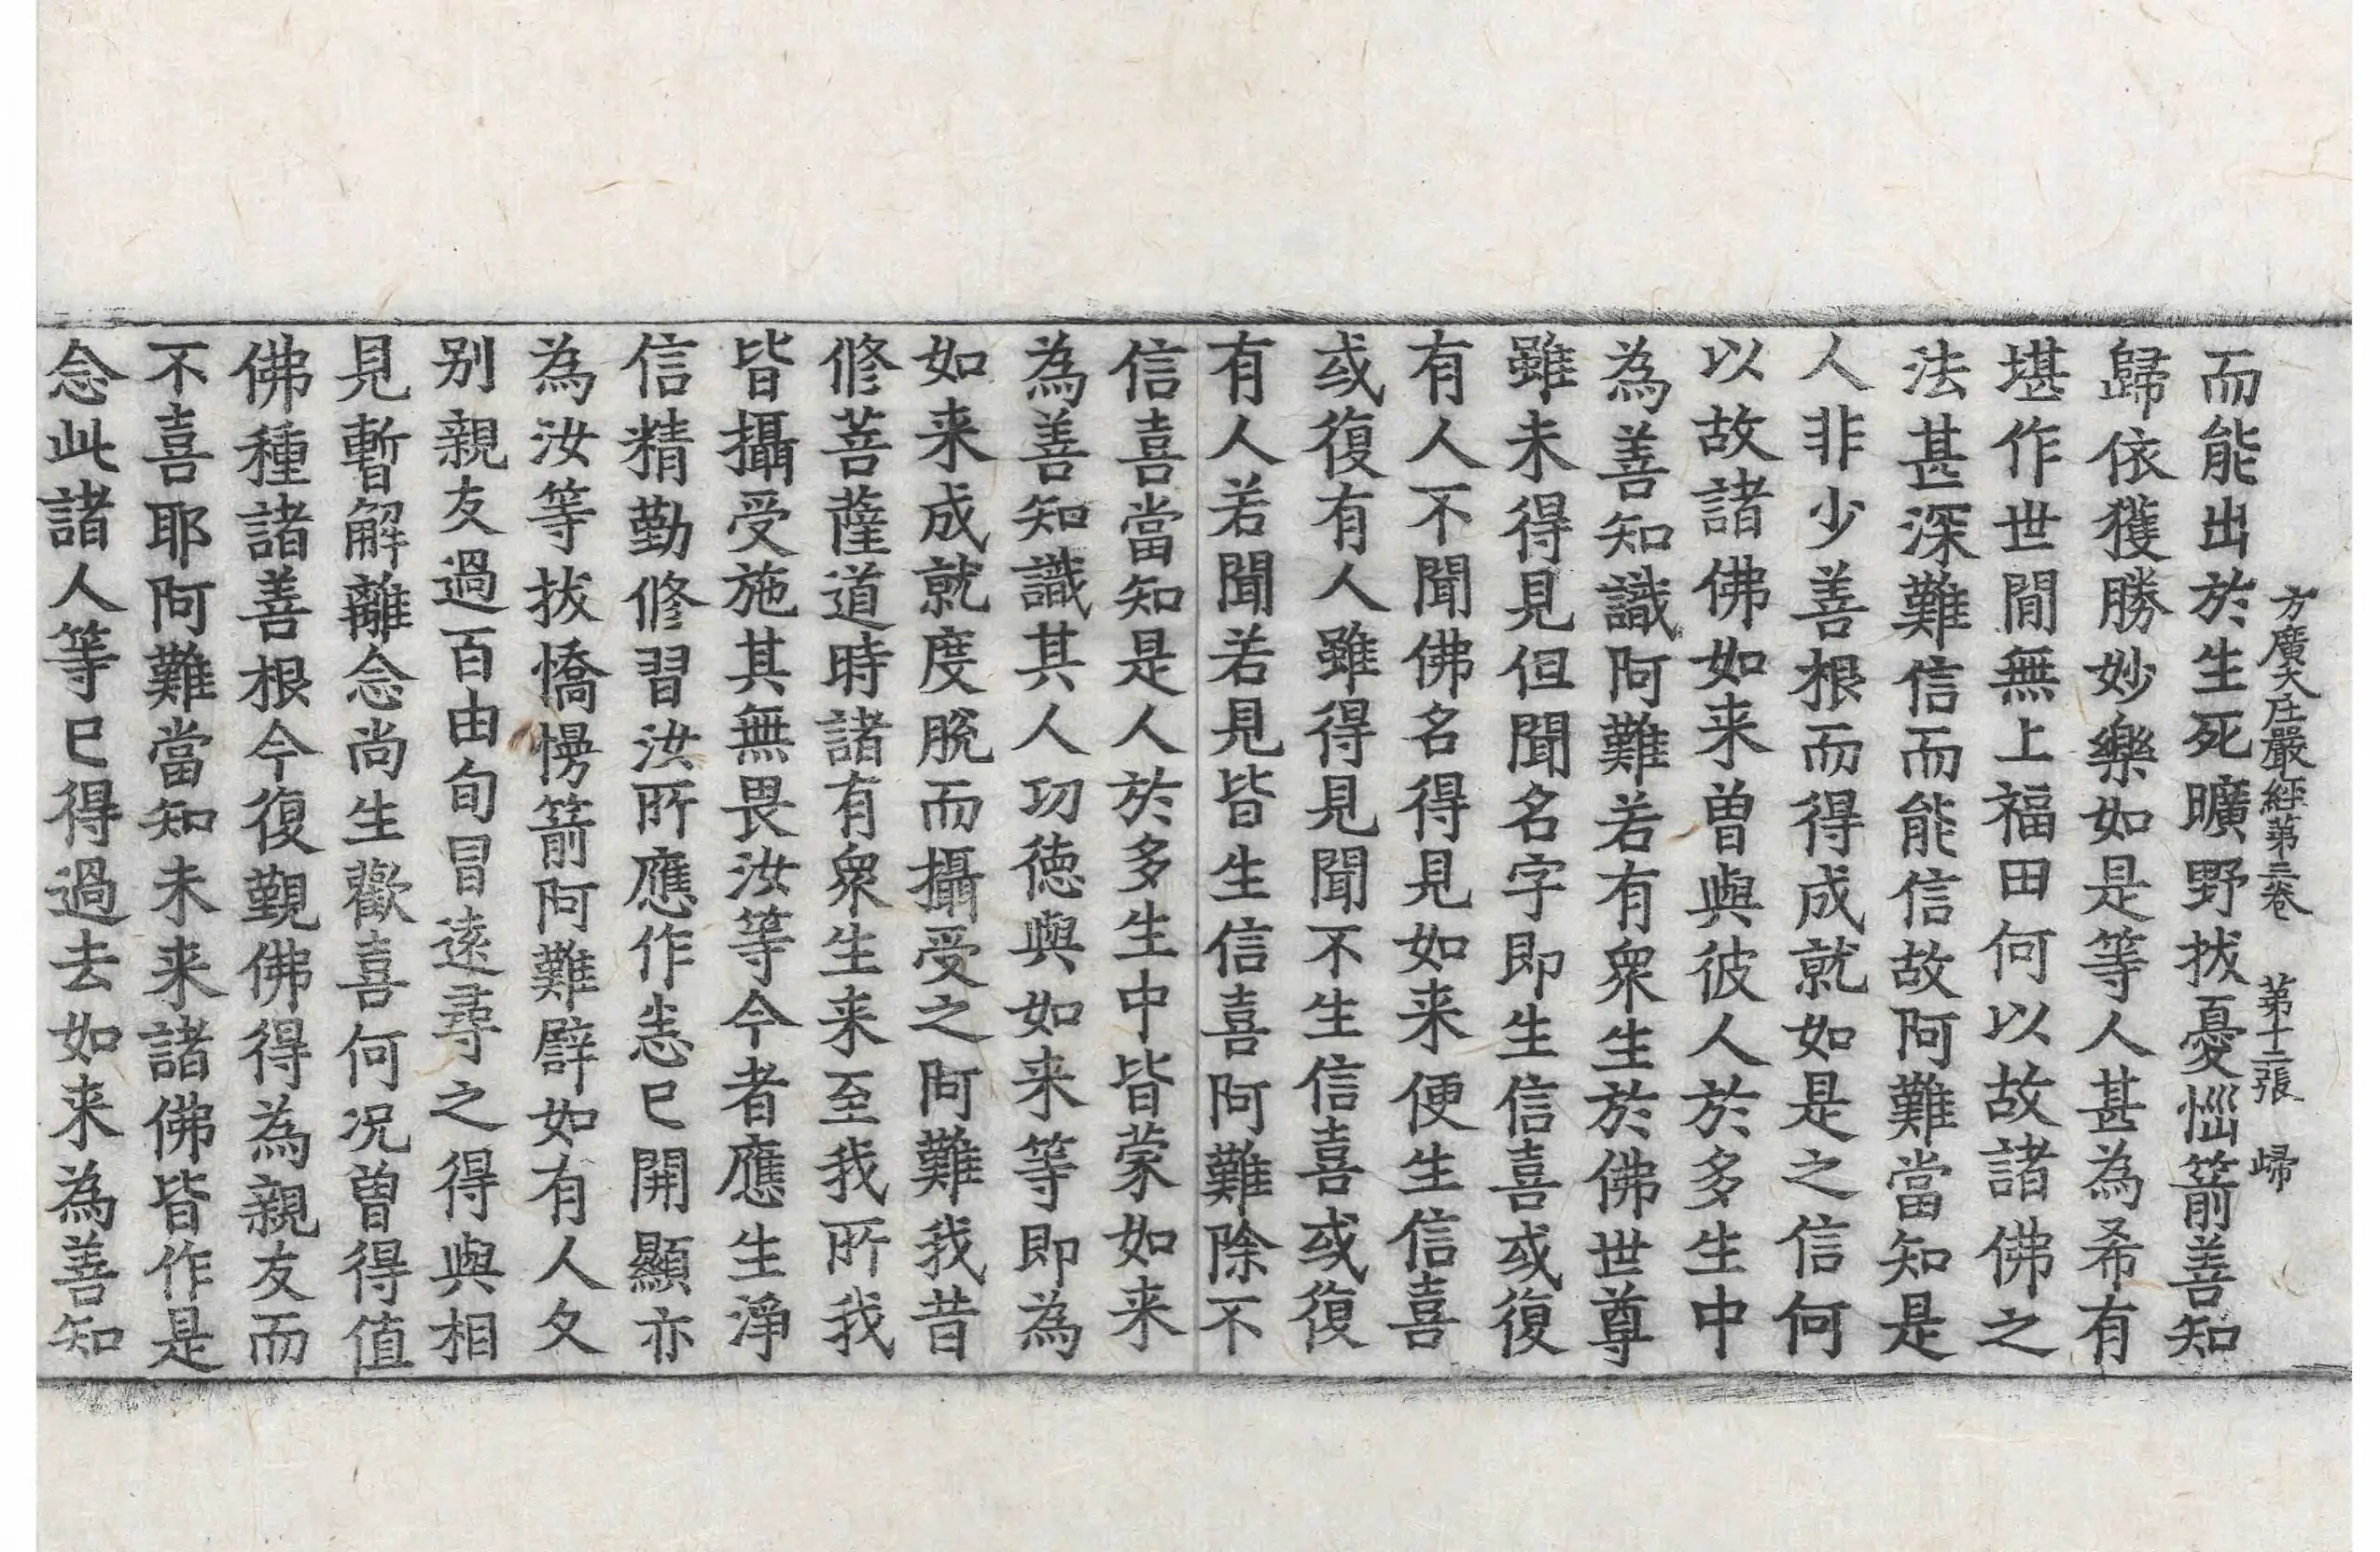 方廣大庄嚴經第三卷 第十二張 歸
而能出於生死曠野拔憂惱箭善知
歸依獲勝妙樂如是等人甚為希有
堪作世閒無上福田何以故諸佛之
法甚深難信而能信故阿難當知是
人非少善根而得成就如是之信何
以故諸佛如来曾與彼人於多生中
為善知識阿難若有衆生於佛世尊
雖未得見但聞名字即生信喜或復
有人不聞佛名得見如来便生信喜
或復有人雖得見聞不生信喜或復
有人若聞若見皆生信喜阿難除不
信喜當知是人於多生中皆蒙如来
為善知識其人功德與如来等即為
如来成就度脫而攝受之阿難我昔
修菩薩道時諸有衆生来至我所我
皆攝受施其無畏汝等今者應生淨
信精勤修習汝所應作恙已開顯亦
為汝等拔憍慢箭阿難譬如有人久
别親友過百由旬冒遠尋之得與相
見暫解離念尚生歡喜何况曾得值
佛種諸善根今復覲佛得為親友而
不喜耶阿難當知未来諸佛皆作是
念此諸人等已得過去如来為善知